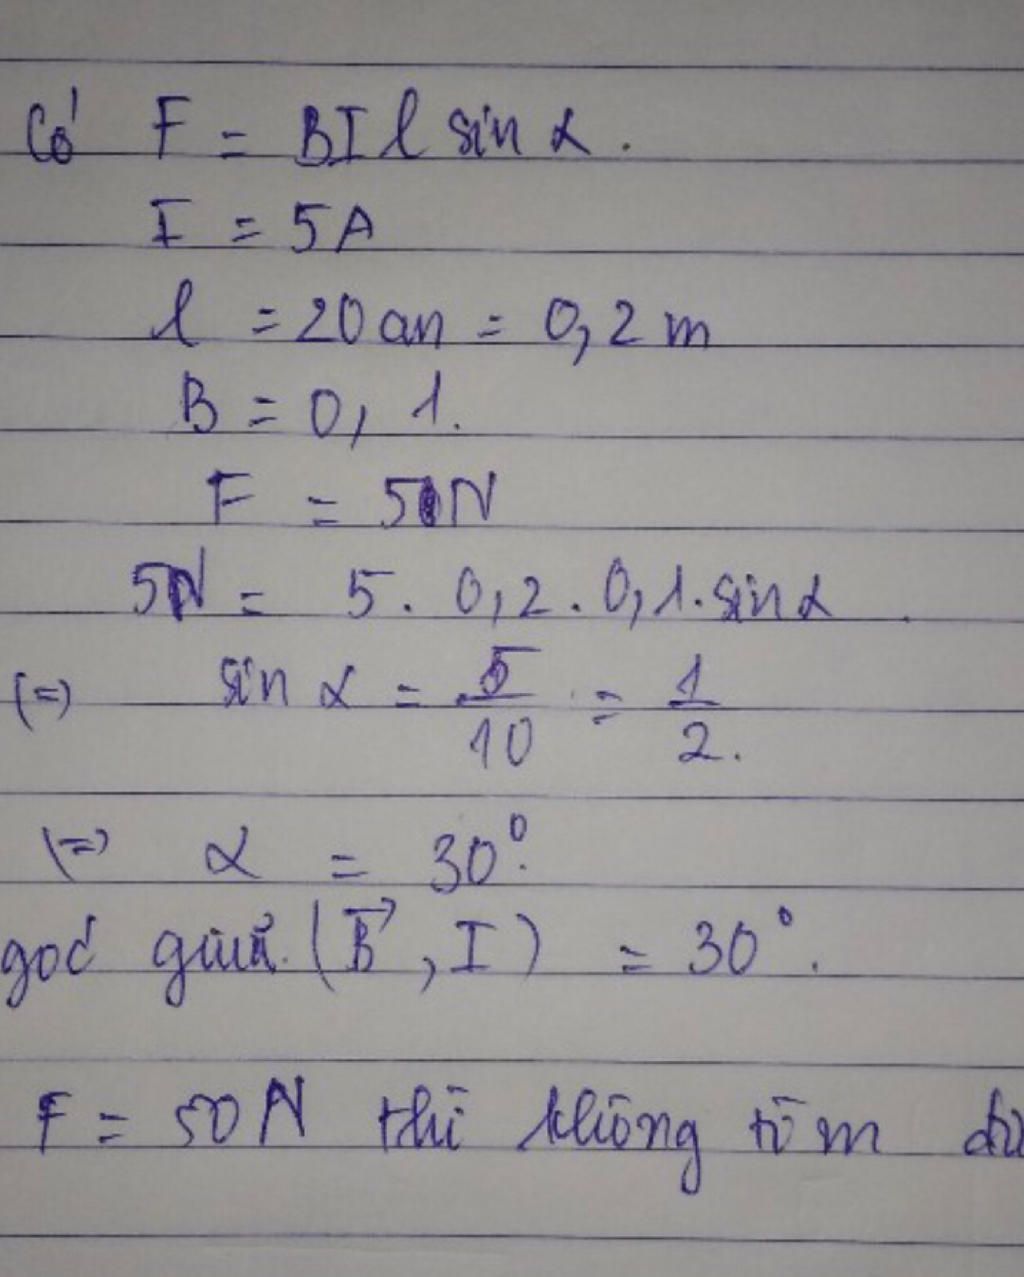 Có F = BIl sin α.
I = 5A
l = 20 cm = 0,2 m
B = 0, 1.
F = 5 N
5N = 5. 0,2. 0,1. sin α
(=) sin α = 5/10 = 1/2.
(=) α = 30°.
goć giữa (B⃗, I) = 30°.
F = 50 N thì không tìm